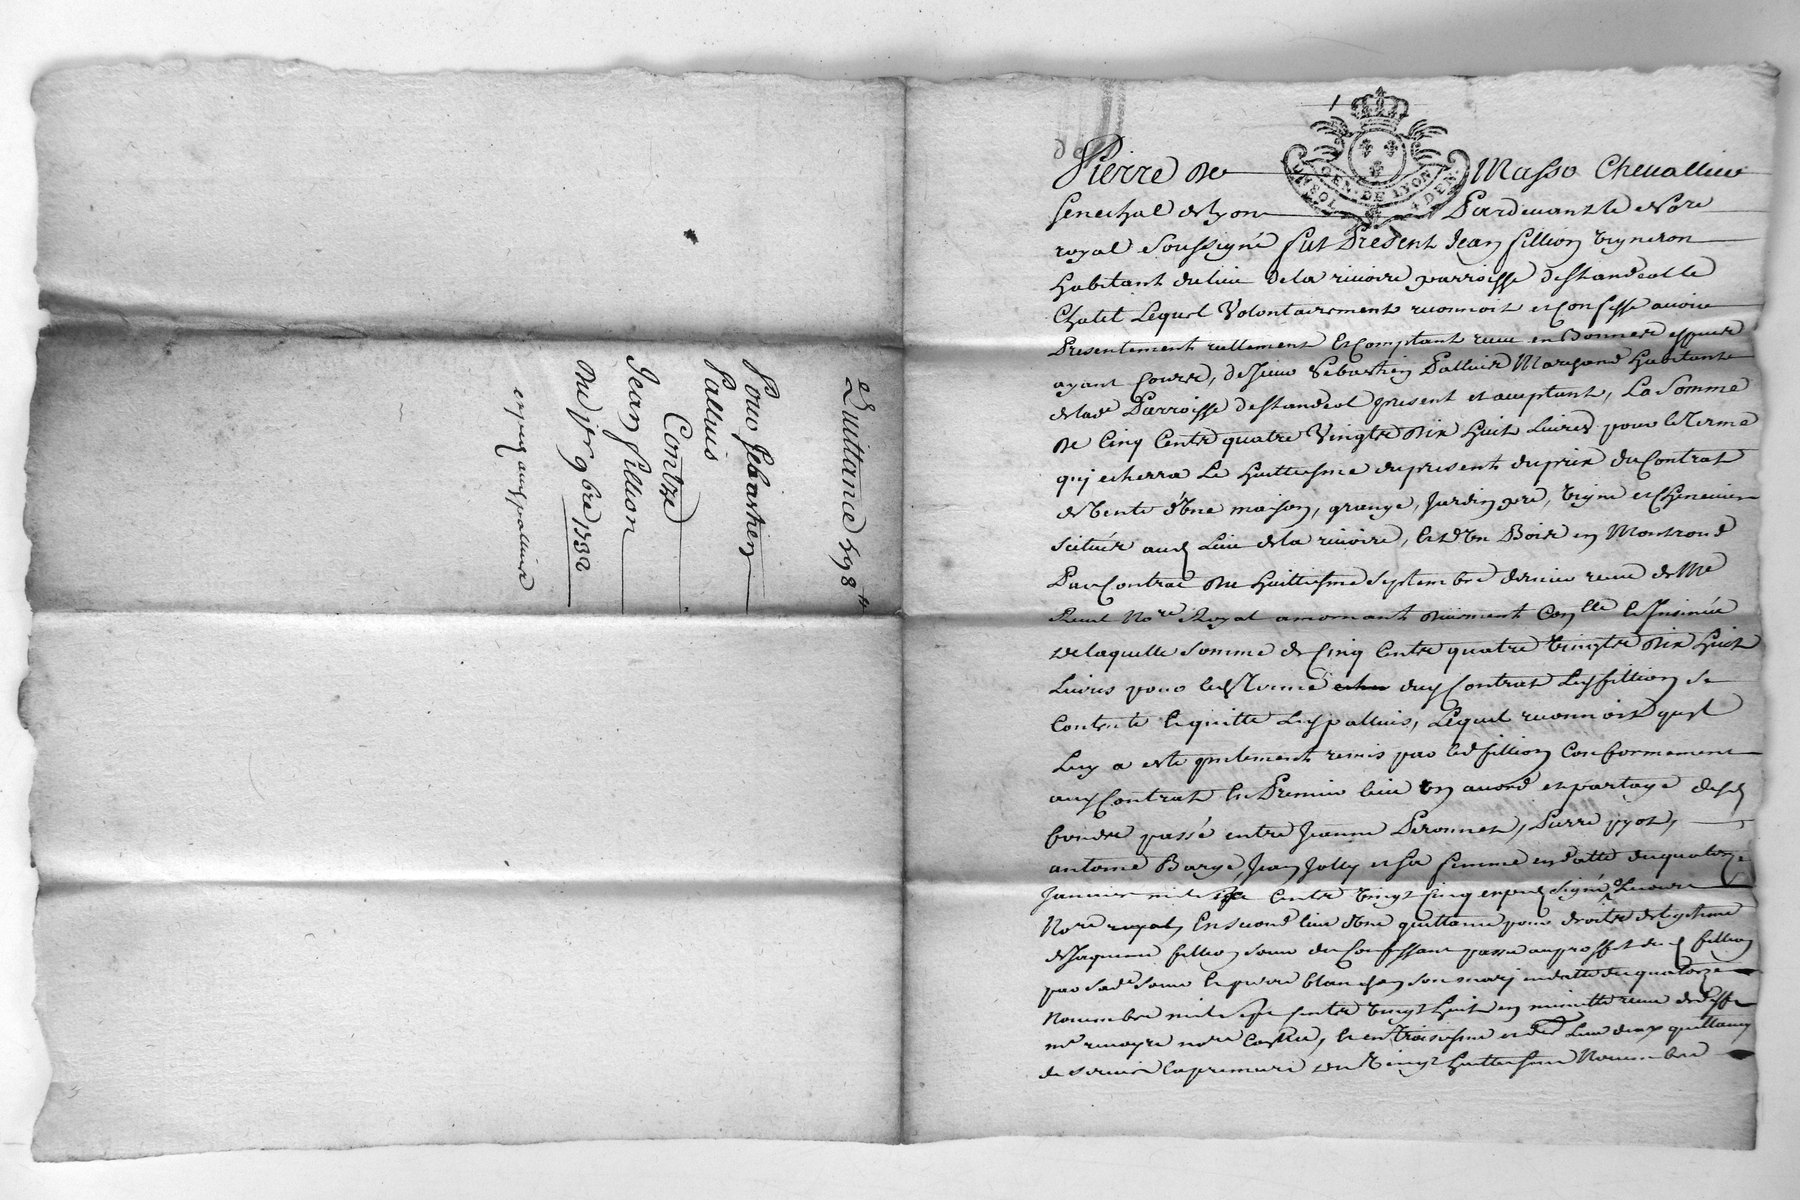 Quittance 598 ₶
Pour Sebastien
Palluis
Contre
Jean fillion
Du jer 9bre 1732
exped. aud palluis
1
GEN. DE LYON
4 DEN.
Pierre De Masso Chevallier
Senechal de Lyon Pardevant le no.re
royal soussigné fut Present Jean fillion vigneron
habitant du lieu de la riuoire parroisse de St andeol le
Chatel Lequel Volontairement reconnoit et confesse auoir
Presentement reellement et comptant receu en Bonnes especes
ayant Cours, de sieur Sebastien Palluis Marchand habitant
de lad. Parroisse de St andeol present et acceptant, La Somme
De Cinq Cents quatre Vingts Dix huit Liures pour le Terme
qui echerra Le huitiesme du present du prix du Contrat
de Vente d'Une maison, grange, Jardin, pré, Vigne et Chenevier
scitués aud. Lieu de la riuoire, et d'Un Bois en Montrond
Par Contrat Du huitiesme Septembre dernier receu de Me
No.re Royal duement Con.llé et Insinué
De laquelle somme de Cinq Cents quatre Vingts Dix huit
Liures pour led. Terme dud. Contrat Led. fillion se
Contente et quitte Led. palluis, Lequel reconnoit quil
Luy a esté presentement remis par led. fillion Conformement
aud. Contrat En Premier lieu Un accord et partage desd.
fonds passé entre Jeanne Peronnet, Pierre pyot,
antoine Barge, Jean Jolly et Sa femme en datte du quatorze
Januier mil Sept Cents Vingt Cinq exped. signé
No.re royal, En second lieu d'Une quittance pour droits de legitime
de Jaqueme fillion soeur du Confessant passée au proffit dud. fillion
par sad. soeur et pierre blanchon son mary en datte du quatorze
Nouembre mil Sept Cents Vingt huit en minutte receue
me no.re et en Troisiesme et der. Lieu deux quittances
de la premiere du Vingt huitiesme Nouembre